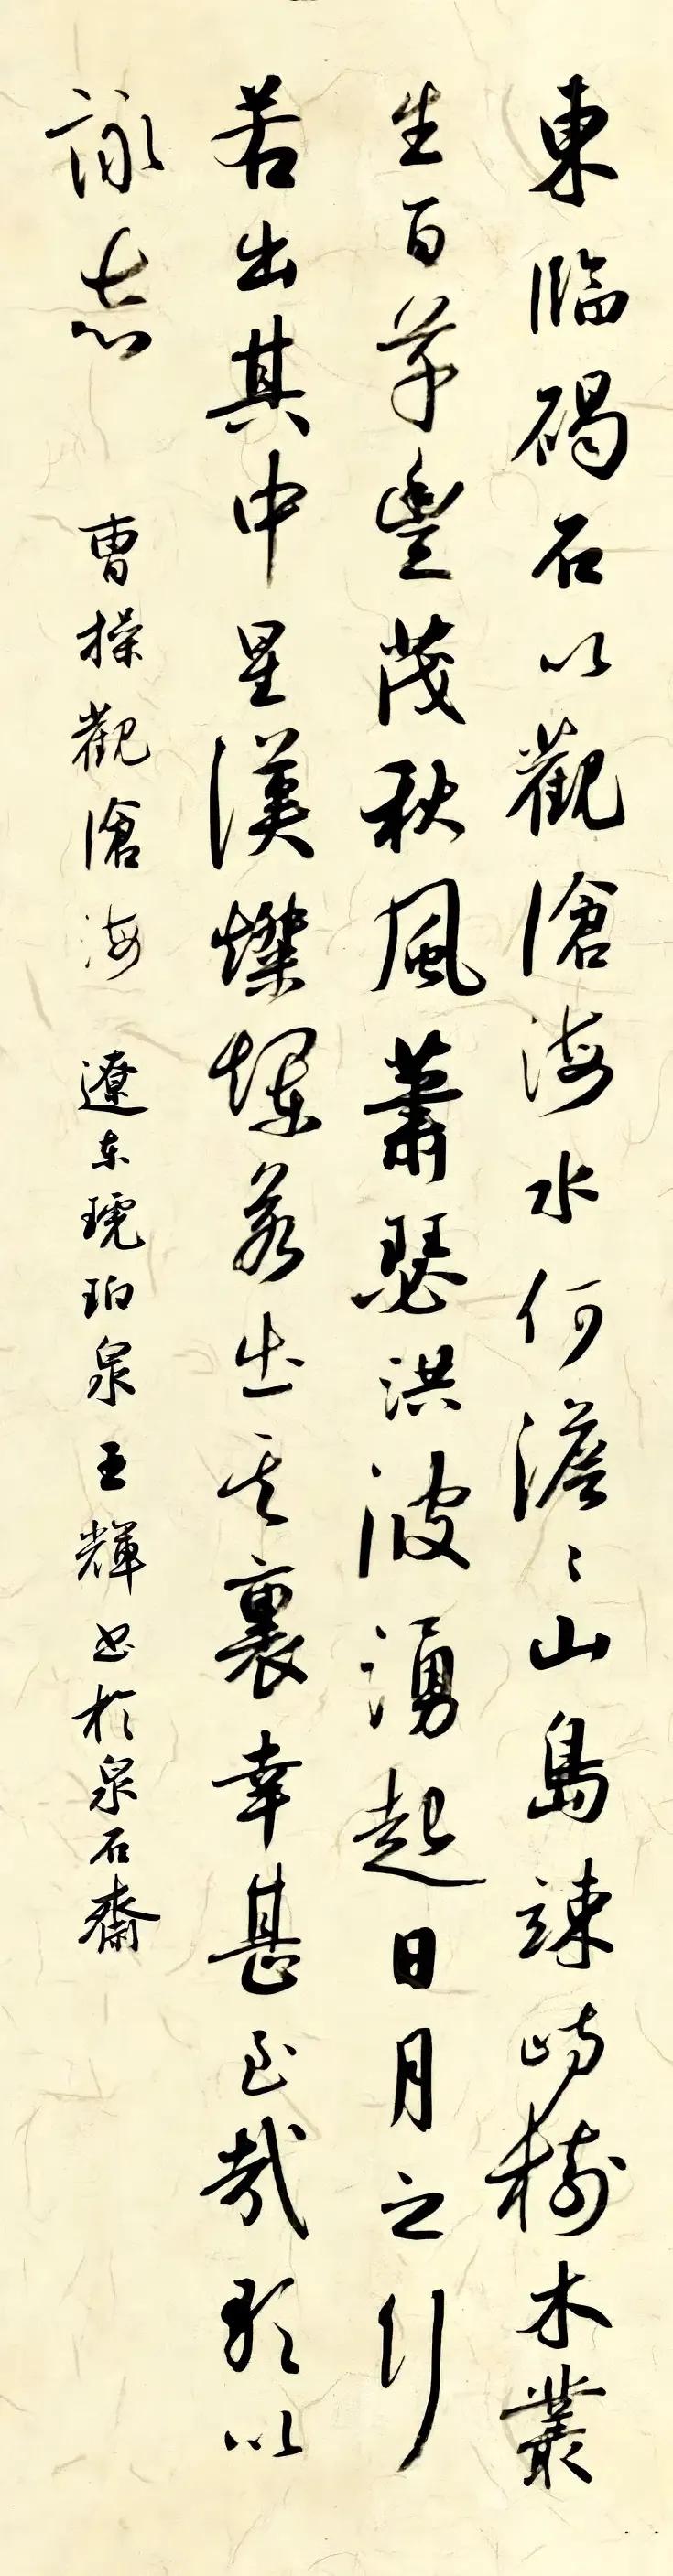 東臨碣石以觀滄海水何澹〻山島竦峙樹木叢
生百草豐茂秋風蕭瑟洪波湧起日月之行
若出其中星漢燦爛若出其裏幸甚至哉歌以
詠志
曹操觀滄海 遼東琥珀泉王輝書於泉石齋